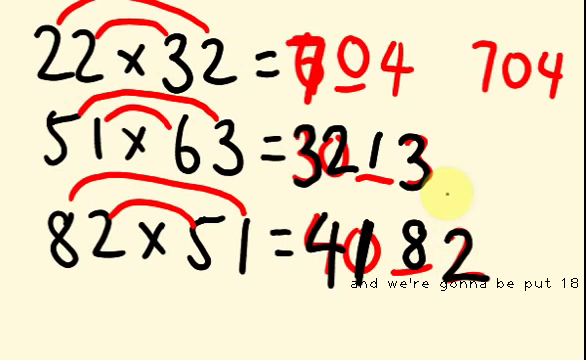 22 × 32 = 704 704
51 × 63 = 3213
82 × 51 = 4182
and we're gonna be put 18